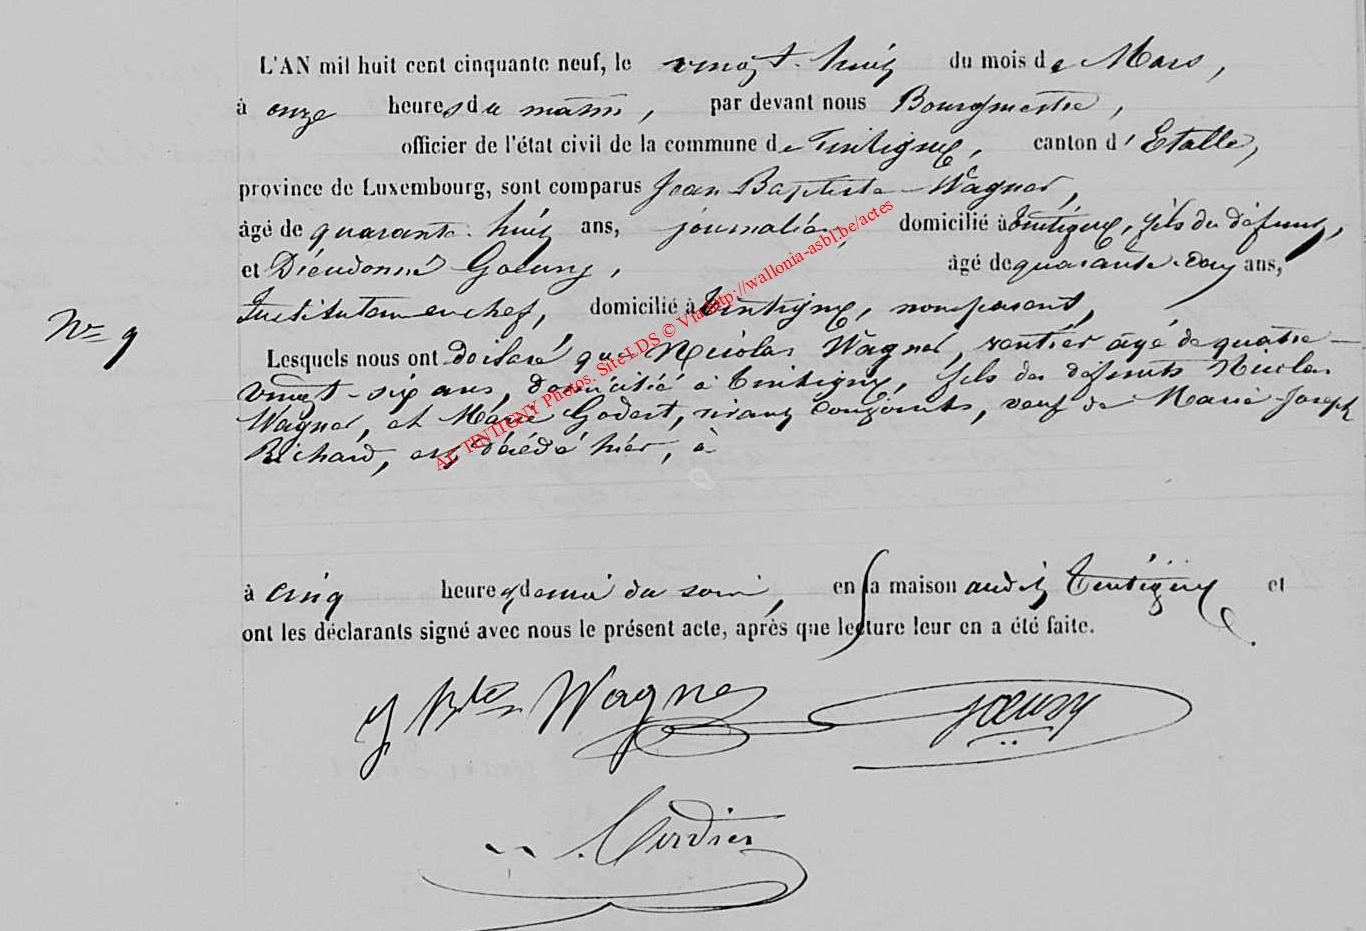 L'AN mil huit cent cinquante neuf, le vingt-huit du mois de Mars,
à onze heures du matin, par devant nous Bourgmestre,
officier de l'état civil de la commune de Tintigny, canton d'Etalle,
province de Luxembourg, sont comparus Jean Baptiste Wagner,
âgé de quarante-huit ans, journalier, domicilié à Tintigny, fils du défunt,
et Dieudonné Goeury, âgé de quarante-deux ans,
Instituteur en chef, domicilié à Tintigny, non parent,
N° 9
Lesquels nous ont déclaré que Nicolas Wagner, rentier âgé de quatre-
vingt-six ans, domicilié à Tintigny, fils des défunts Nicolas
Wagner, et Marie Godert, vivans conjoints, veuf de Marie Joseph
Richard, est décédé hier, à
à cinq heures & demie du soir, en sa maison audit Tintigny et
ont les déclarants signé avec nous le présent acte, après que lecture leur en a été faite.
J Bte Wagner Goeury
Verdier
AC TINTIGNY Photos. Site LDS © Via http://wallonia-asbl.be/actes